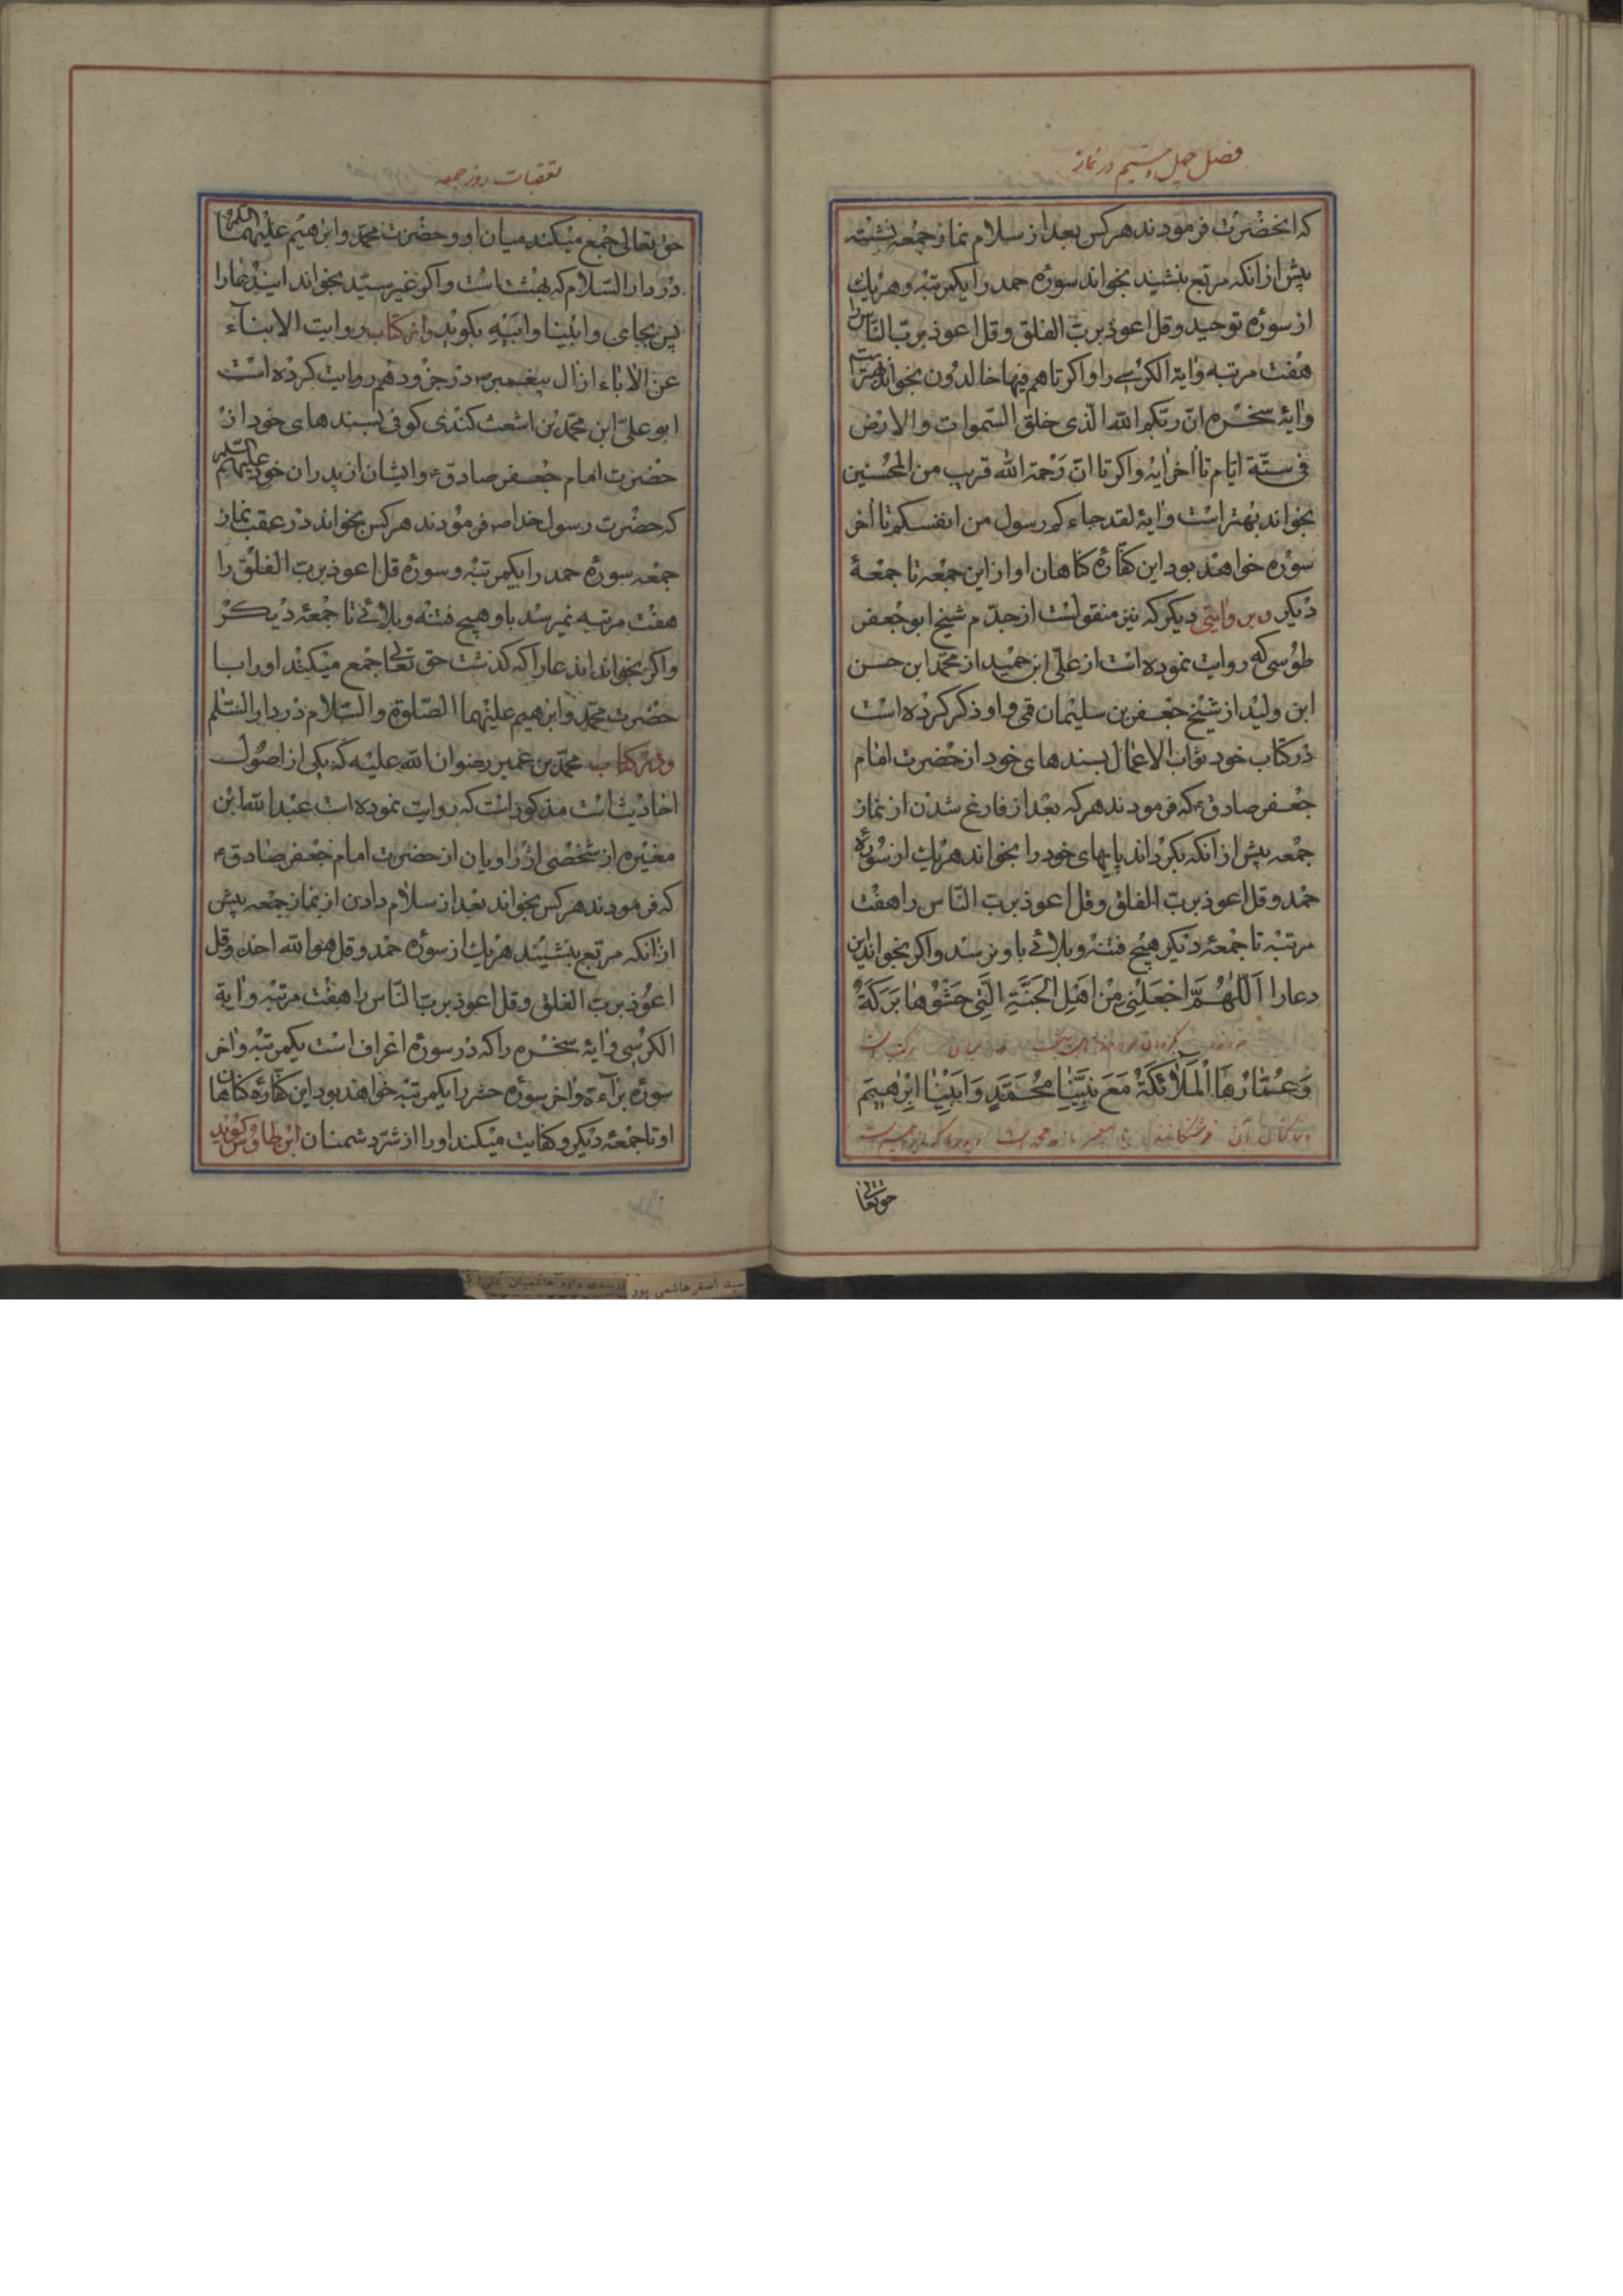 فصل چهل و ششم در نماز
که انحضرت فرمودند هرکس بعد از سلام نماز جمعه نشسته
پیش از انکه مرتبع بنشیند بخواند سوره حمد را یکمرتبه و هریك
از سوره توحید و قل اعوذ برب الفلق و قل اعوذ برب الناس را
هفت مرتبه و ایة الکرسی را و اکر تا هم فیها خالدون بخواند بهتر است
و ایهٔ سخره ان ربکم الله الذی خلق السموات و الارض
فی ستة ایام تا اخر ایه و اکر تا ان رحمة الله قریب من المحسنین
بخواند بهتر است و ایهٔ لقد جاءکم رسول من انفسکم تا اخر
سوره خواهند بود این کفاره کناهان او از این جمعه تا جمعهٔ
دیکر و بروایتی دیکر که نیز منقولست از جدم شیخ ابو جعفر
طوسی که روایت نموده است از علی ابن حمید از محمد ابن حسن
ابن ولید از شیخ جعفر بن سلیمان قمی و او ذکر کرده است
در کتاب خود ثواب الاعمال بسندهای خود از حضرت امام
جعفر صادق ع که فرمودند هر که بعد از فارغ شدن از نماز
جمعه پیش از انکه بکرداند پایهای خود را بخواند هریك از سوره
حمد و قل اعوذ برب الفلق و قل اعوذ برب الناس را هفت
مرتبه تا جمعهٔ دیکر هیچ فتنه و بلائی باو نرسد و اکر بخواند این
دعا را اَللّٰهُمَّ اجْعَلْنِی مِنْ اَهْلِ الْجَنَّةِ الَّتِی حَشْوُهَا بَرَکَةٌ
وَ عُمّٰارُهَا الْمَلٰٓائِکَةُ مَعَ نَبِیِّنٰا مُحَمَّدٍ وَ اَبِیْنٰا اِبْرٰهِیمَ
حق تعالی
تعقیبات روز جمعه
حق تعالی جمع میکند میان او و حضرت محمد و ابرهیم علیهما السلام
در دار السلام که بهشتاست و اکر غیر سید بخواند ایندعا را
پس بجای و ابینا و ابیه بکوید و از کتاب روایت الابنآء
عن الاباء از ال پیغمبر ص در جزو دهم روایت کرده است
ابو علی ابن محمد بن اشعث کندی کوفی بسندهای خود از
حضرت امام جعفر صادق ع و ایشان از پدران خود علیهم السلام
که حضرت رسول خدا ص فرمودند هرکس بخواند در عقب نماز
جمعه سوره حمد را یکمرتبه و سوره قل اعوذ برب الفلق را
هفت مرتبه نمیرسد باو هیچ فتنه و بلائی تا جمعهٔ دیکر
و اکر بخواند ایندعا را که کذشت حق تعالی جمع میکند او را با
حضرت محمد و ابرهیم علیهما الصلوة و السلام در دار السلم
و در کتاب محمد بن عمیر رضوان الله علیه که یکی از اصول
احادیث است مذکور است که روایت نموده است عبد الله ابن
مغیره از شخصی از راویان از حضرت امام جعفر صادق ع
که فرمودند هرکس بخواند بعد از سلام دادن از نماز جمعه پیش
از انکه مرتبع بنشیند هریك از سوره حمد و قل هو الله احد و قل
اعوذ برب الفلق و قل اعوذ برب الناس را هفت مرتبه و ایة
الکرسی و ایهٔ سخره را که در سوره اعراف است یکمرتبه و اخر
سوره برآءة و اخر سوره حشر را یکمرتبه خواهند بود این کفاره کناهان
او تا جمعهٔ دیکر و کفایت میکند او را از شر دشمنان ابن طاوس کوید
سید اصغر هاشمی پور